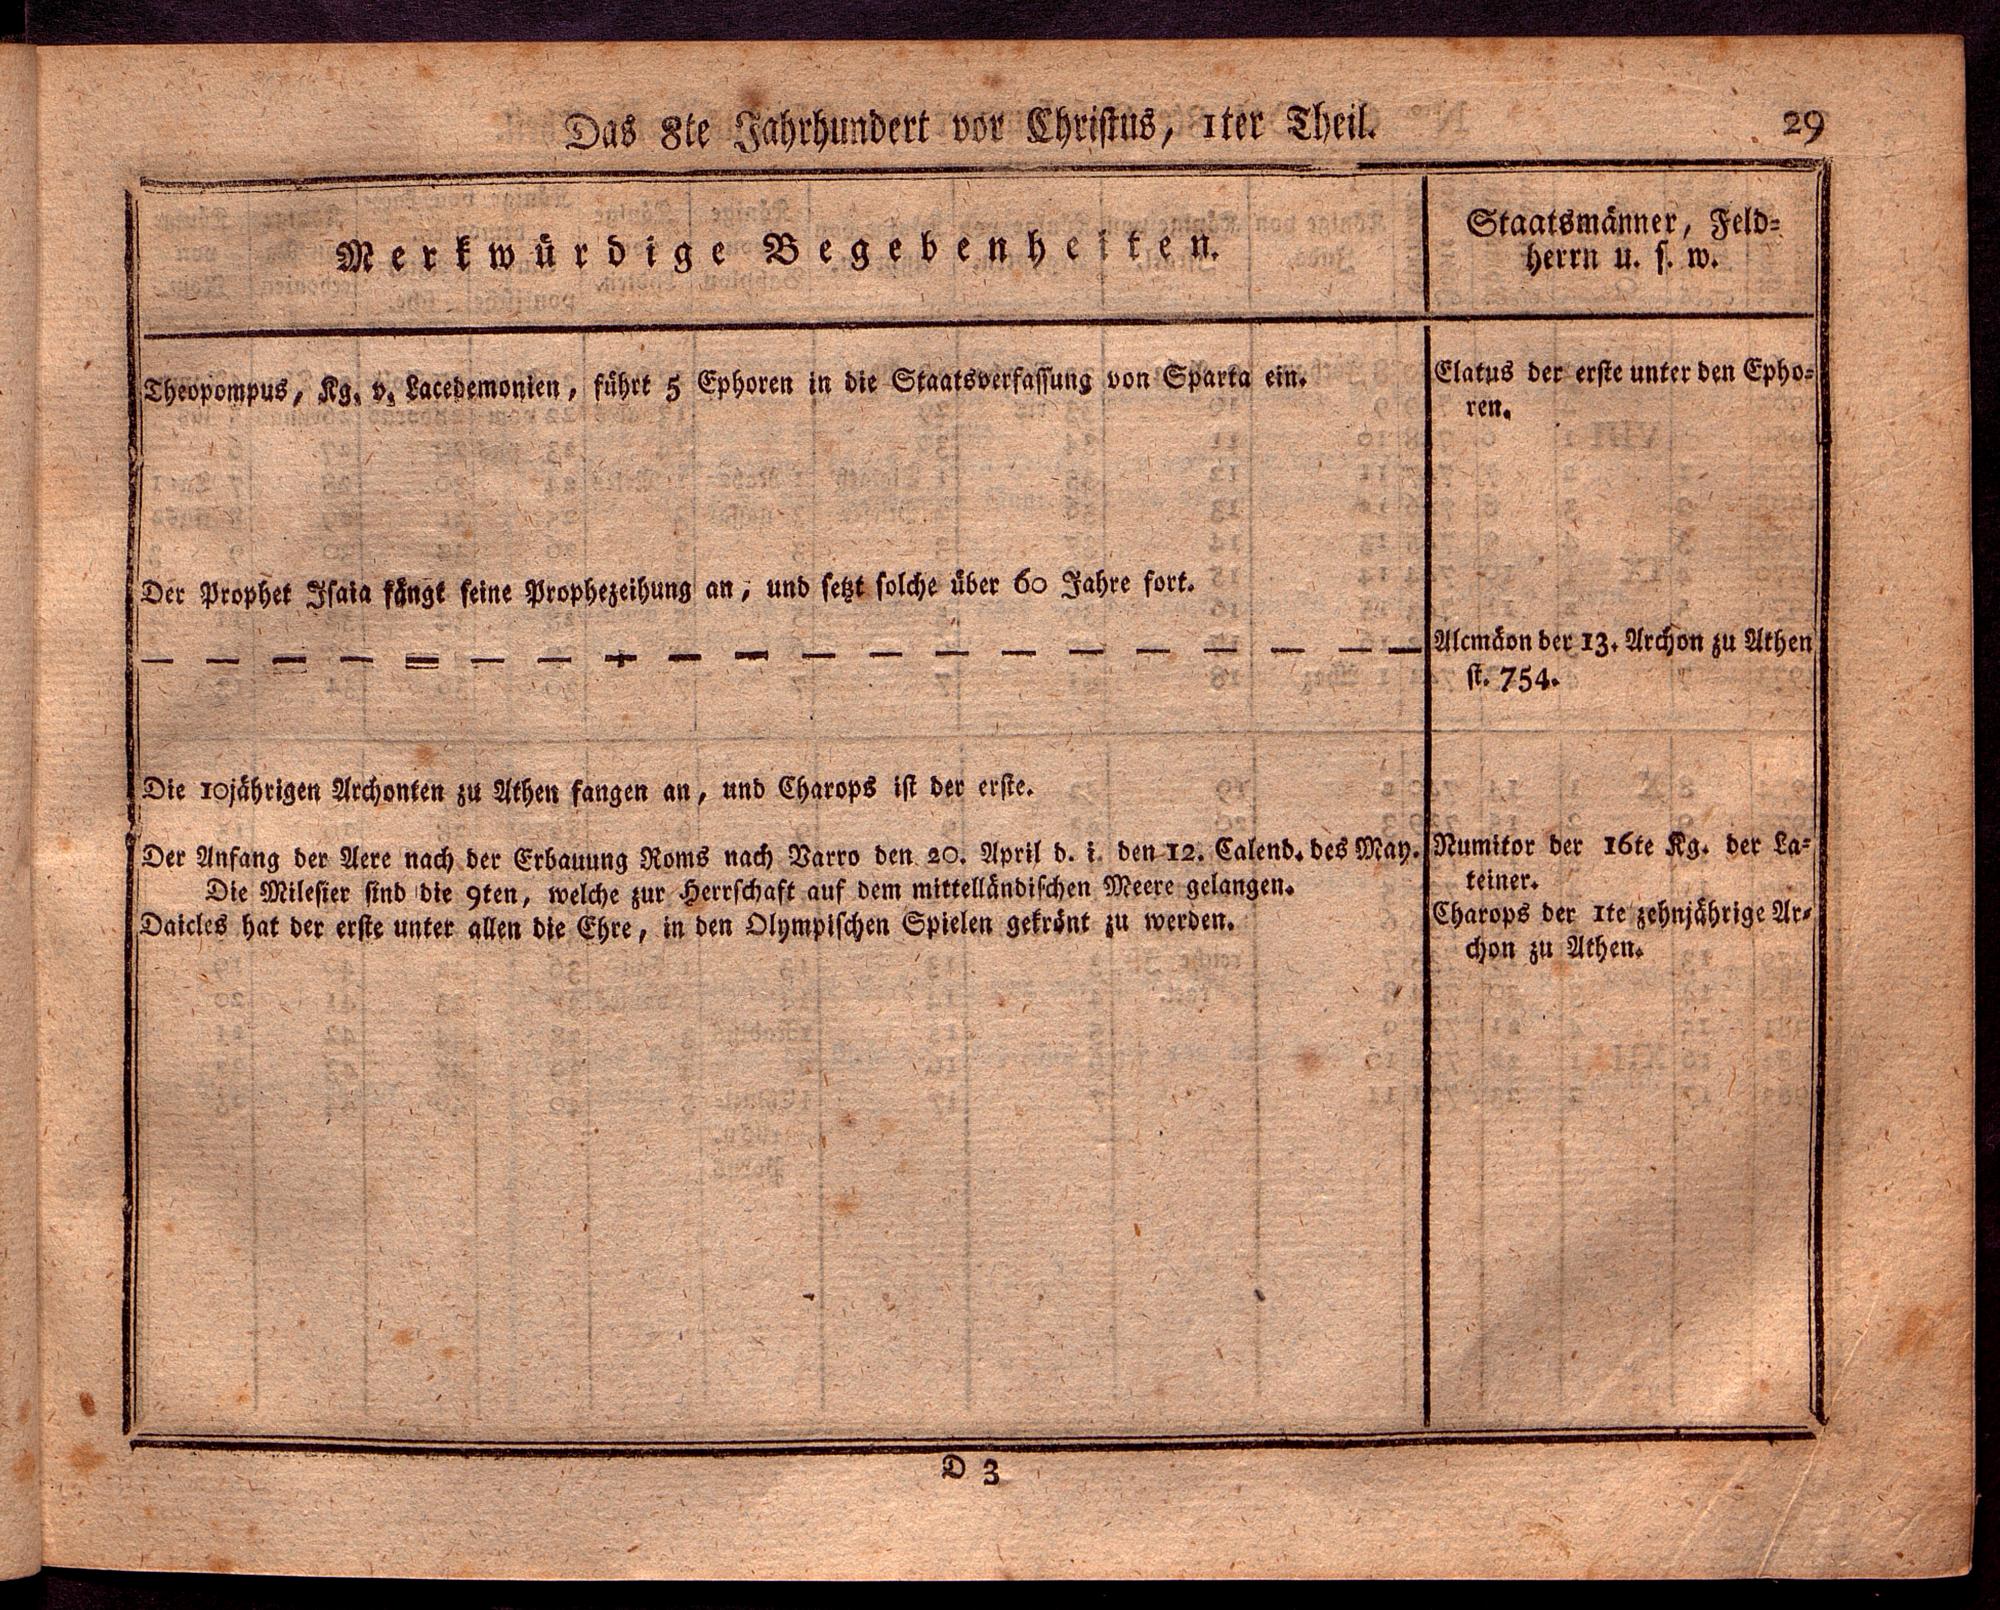 Das 8te Jahrhundert vor Christus, 1ter Theil.
29
Merkwürdige Begebenheiten.
Staatsmänner, Feld-
herrn u. s. w.
Theopompus, Kg. v. Lacedemonien, führt 5 Ephoren in die Staatsverfassung von Sparta ein.
Elatus der erste unter den Epho-
ren.
Der Prophet Isaia fängt seine Prophezeihung an, und setzt solche über 60 Jahre fort.
Alcmäon der 13. Archon zu Athen
st. 754.
Die 10jährigen Archonten zu Athen fangen an, und Charops ist der erste.
Der Anfang der Aere nach der Erbauung Roms nach Varro den 20. April d. i. den 12. Calend. des May.
Die Milesier sind die 9ten, welche zur Herrschaft auf dem mittelländischen Meere gelangen.
Daicles hat der erste unter allen die Ehre, in den Olympischen Spielen gekrönt zu werden.
Numitor der 16te Kg. der La-
teiner.
Charops der 1te zehnjährige Ar-
chon zu Athen.
D 3